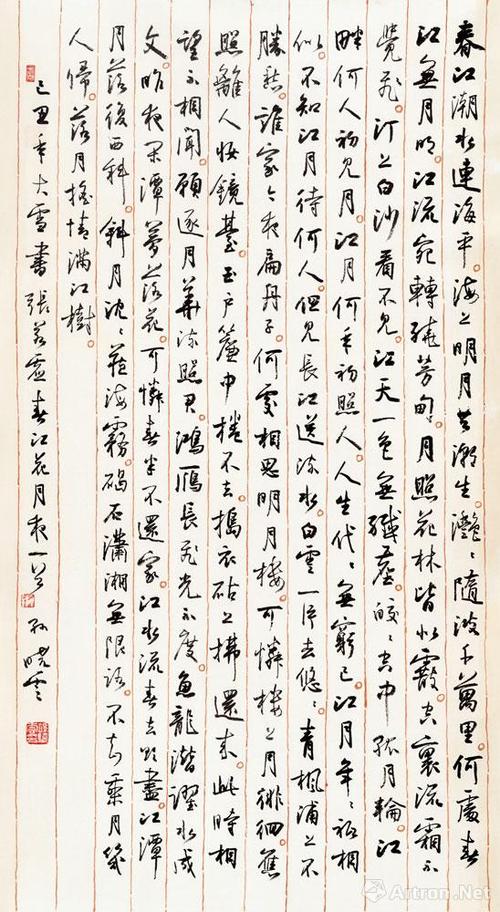 春江潮水連海平。海上明月共潮生。灩々隨波千萬里。何處春
江無月明。江流宛轉繞芳甸。月照花林皆似霰。空裏流霜不
覺飛。汀上白沙看不見。江天一色無纖塵。皎々空中孤月輪。江
畔何人初見月。江月何年初照人。人生代々無窮已。江月年々祇相
似。不知江月待何人。但見長江送流水。白雲一片去悠々。青楓浦上不
勝愁。誰家今夜扁舟子。何處相思明月樓。可憐樓上月徘徊。應
照離人妝鏡臺。玉戶簾中捲不去。搗衣砧上拂還來。此時相
望不相聞。願逐月華流照君。鴻雁長飛光不度。魚龍潛躍水成
文。昨夜閑潭夢落花。可憐春半不還家。江水流春去欲盡。江潭
月落復西斜。斜月沈々藏海霧。碣石瀟湘無限路。不知乘月幾
人歸。落月搖情滿江樹。
己丑年大雪書張若虛春江花月夜一首 孫曉雲
Artron.Net